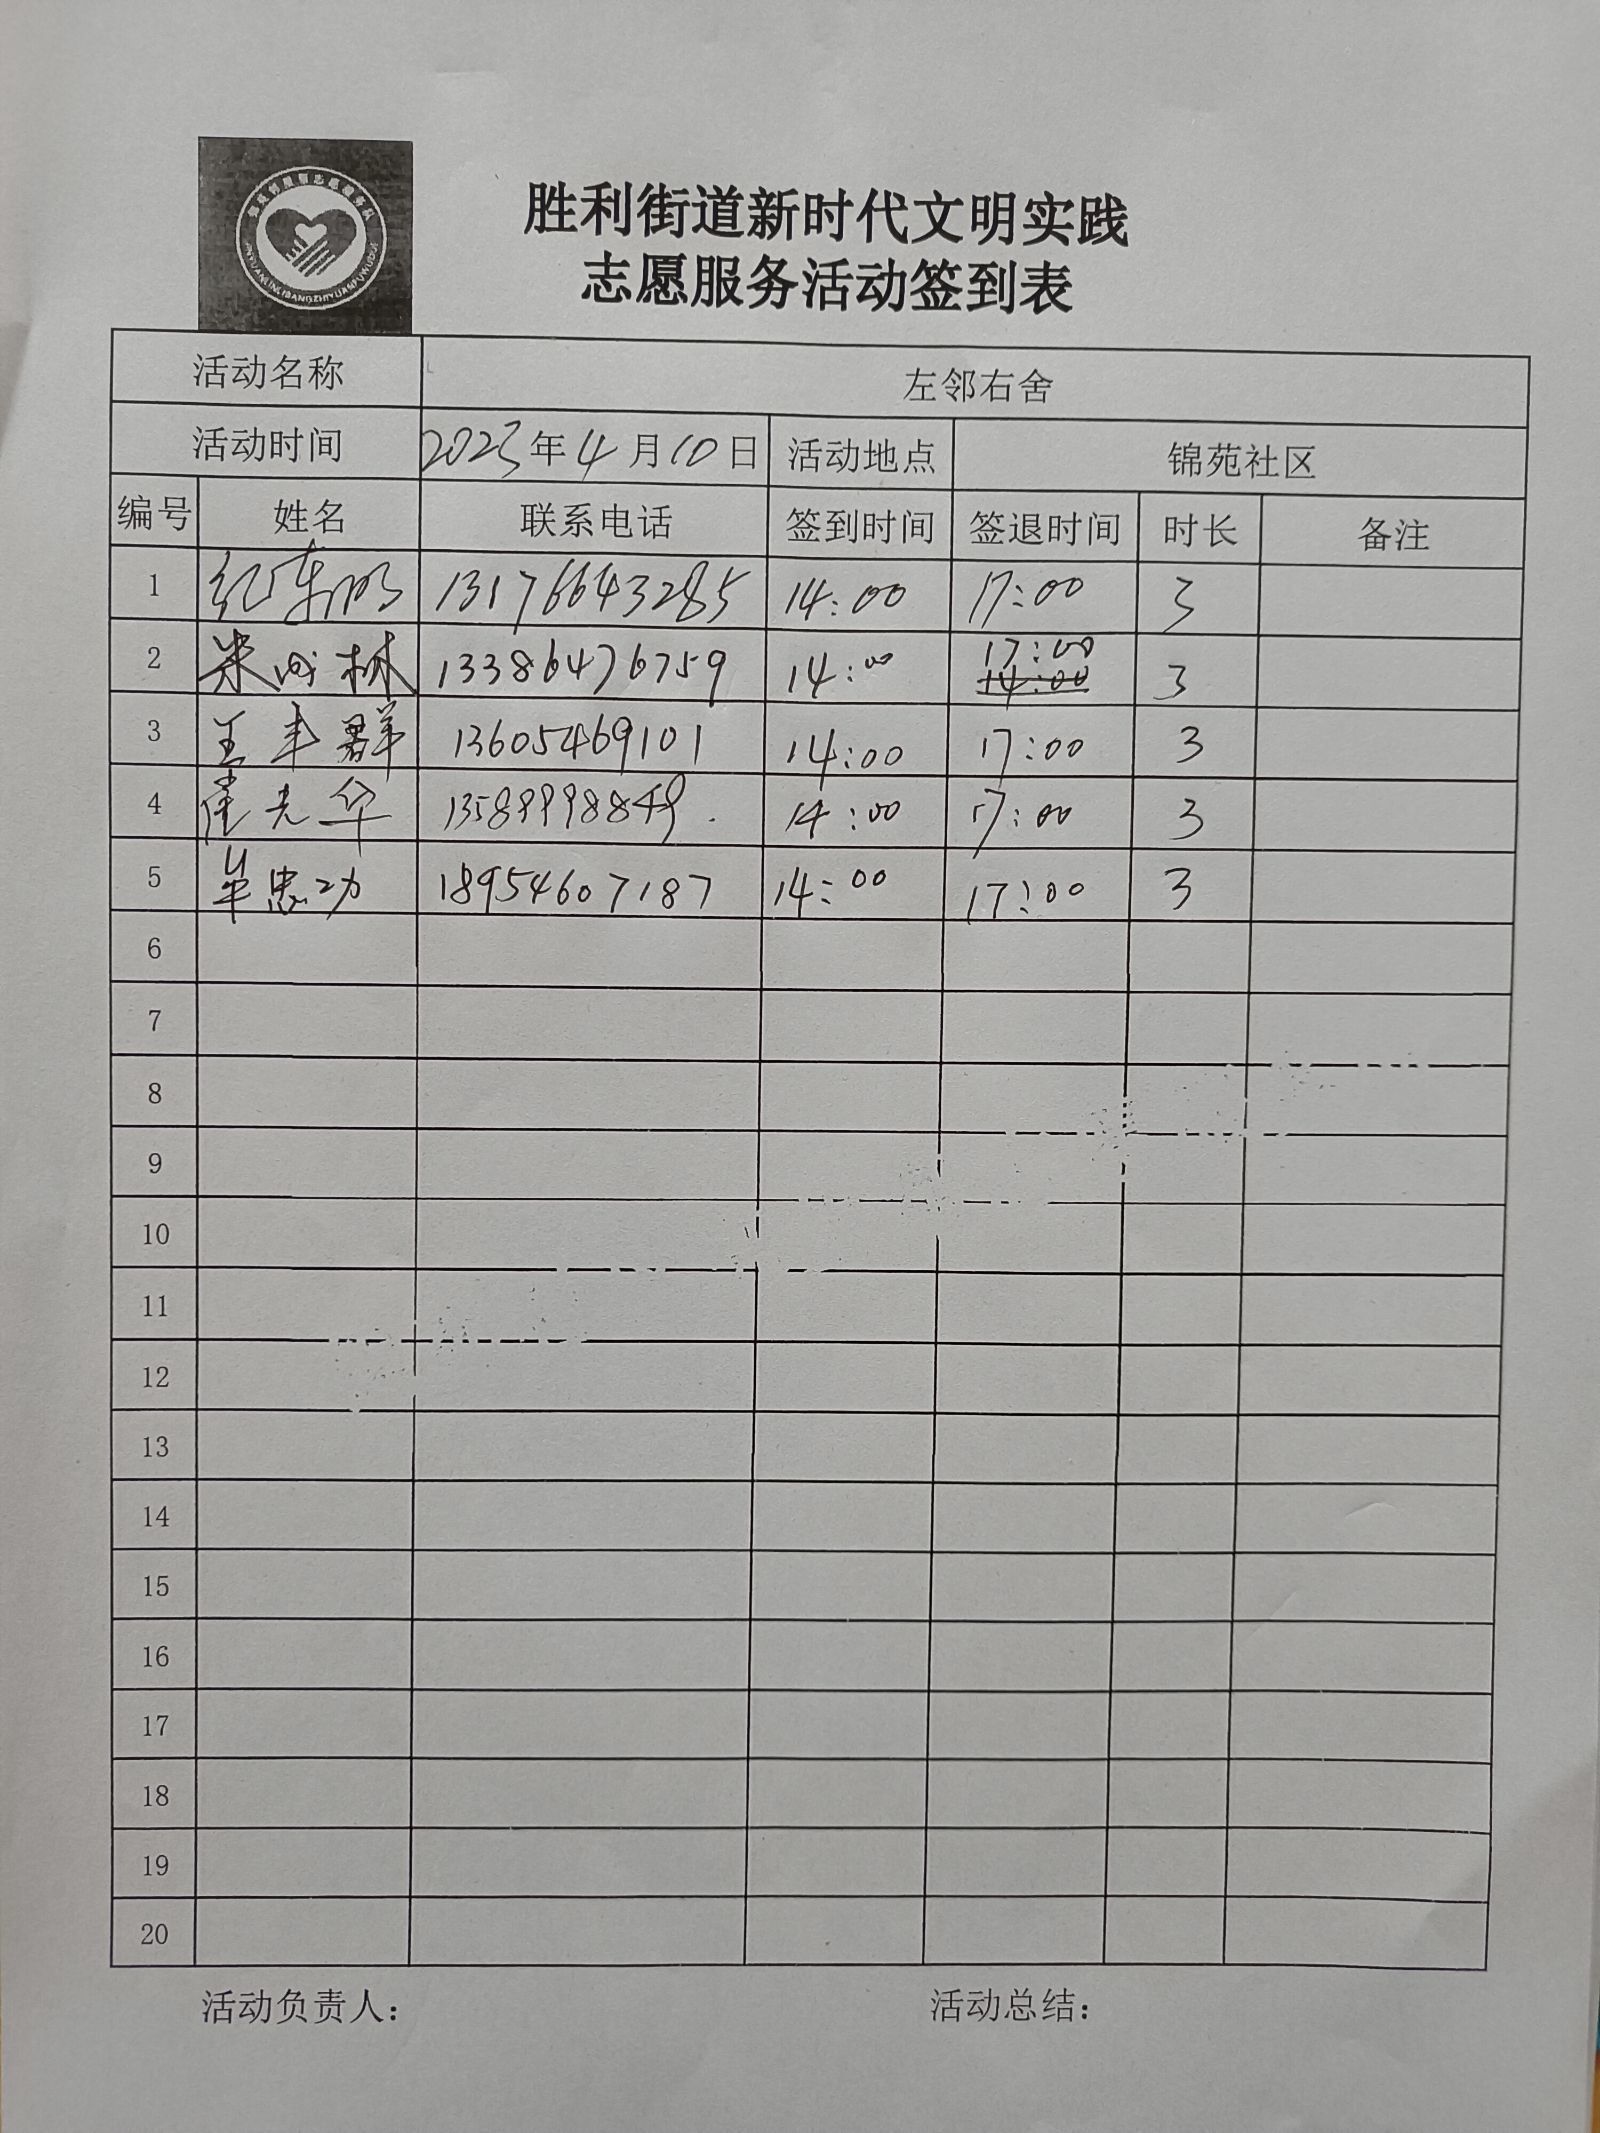 胜利街道新时代文明实践
志愿服务活动签到表
活动名称 左邻右舍
活动时间 2023年4月10日 活动地点 锦苑社区
编号 姓名 联系电话 签到时间 签退时间 时长 备注
1 纪东明 13176643285 14:00 17:00 3
2 林 13386476759 14:00 17:00 14:00 3
3 王丰群 13605469101 14:00 17:00 3
4 崔光华 13589998849. 14:00 17:00 3
5 忠功 18954607187 14:00 17:00 3
6
7
8
9
10
11
12
13
14
15
16
17
18
19
20
活动负责人： 活动总结：